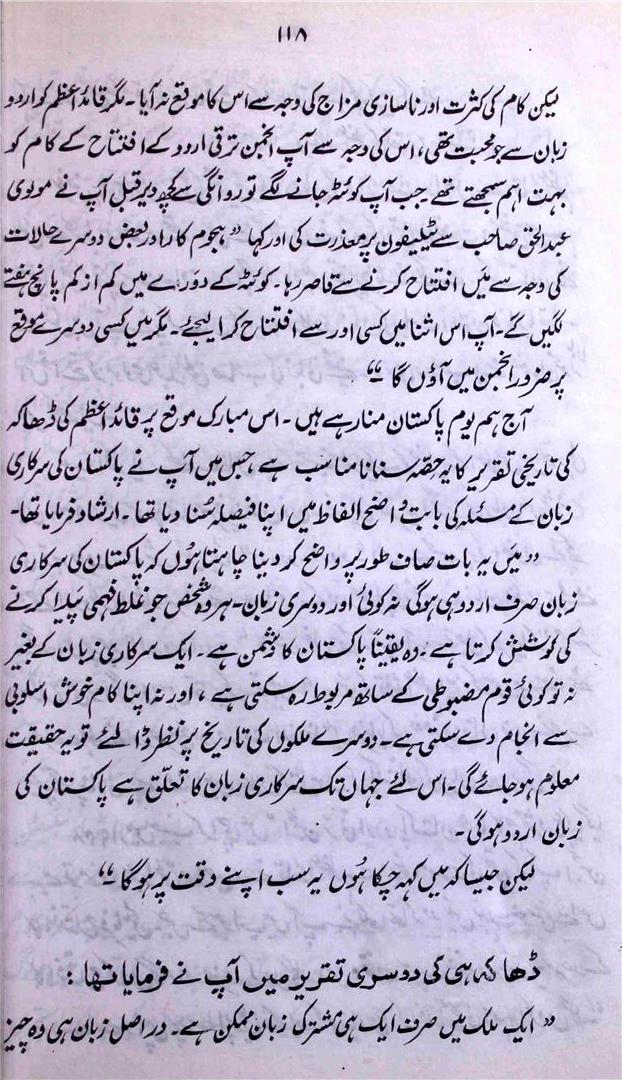 ۱۱۸
لیکن کام کی کثرت اور ناسازی مزاج کی وجہ سے اس کا موقع نہ آیا۔ مگر قائد اعظم کو اردو
زبان سے جو محبت تھی، اس کی وجہ سے آپ انجمن ترقی اردو کے افتتاح کے کام کو
بہت اہم سمجھتے تھے جب آپ کوئٹہ جانے لگے تو روانگی سے کچھ دیر قبل آپ نے مولوی
عبدالحق صاحب سے ٹیلیفون پر معذرت کی اور کہا ”ہجوم کار اور بعض دوسرے حالات
کی وجہ سے میں افتتاح کرنے سے قاصر رہا۔ کوئٹہ کے دورے میں کم از کم پانچ ہفتے
لگیں گے۔ آپ اس اثنا میں کسی اور سے افتتاح کرا لیجئے۔ مگر میں کسی دوسرے موقع
پر ضرور انجمن میں آؤں گا“
آج ہم یوم پاکستان منا رہے ہیں۔ اس مبارک موقع پر قائد اعظم کی ڈھاکہ
کی تاریخی تقریر کا یہ حصّہ سنانا مناسب ہے جس میں آپ نے پاکستان کی سرکاری
زبان کے مسئلہ کی بابت واضح الفاظ میں اپنا فیصلہ سُنا دیا تھا۔ ارشاد فرمایا تھا۔
”میں یہ بات صاف طور پر واضح کر دینا چاہتا ہوں کہ پاکستان کی سرکاری
زبان صرف اردو ہی ہوگی نہ کوئی اور دوسری زبان۔ ہر وہ شخص جو غلط فہمی پیدا کرنے
کی کوشش کرتا ہے۔ وہ یقیناً پاکستان کا دشمن ہے۔ ایک سرکاری زبان کے بغیر
نہ تو کوئی قوم مضبوطی کے ساتھ مربوط رہ سکتی ہے، اور نہ اپنا کام خوش اسلوبی
سے انجام دے سکتی ہے۔ دوسرے ملکوں کی تاریخ پر نظر ڈالئے تو یہ حقیقت
معلوم ہو جائے گی۔ اس لئے جہاں تک سرکاری زبان کا تعلّق ہے پاکستان کی
زبان اردو ہوگی۔
لیکن جیسا کہ میں کہہ چکا ہوں یہ سب اپنے وقت پر ہوگا“
ڈھاکہ ہی کی دوسری تقریر میں آپ نے فرمایا تھا:
”ایک ملک میں صرف ایک ہی مشترک زبان ممکن ہے۔ دراصل زبان ہی وہ چیز